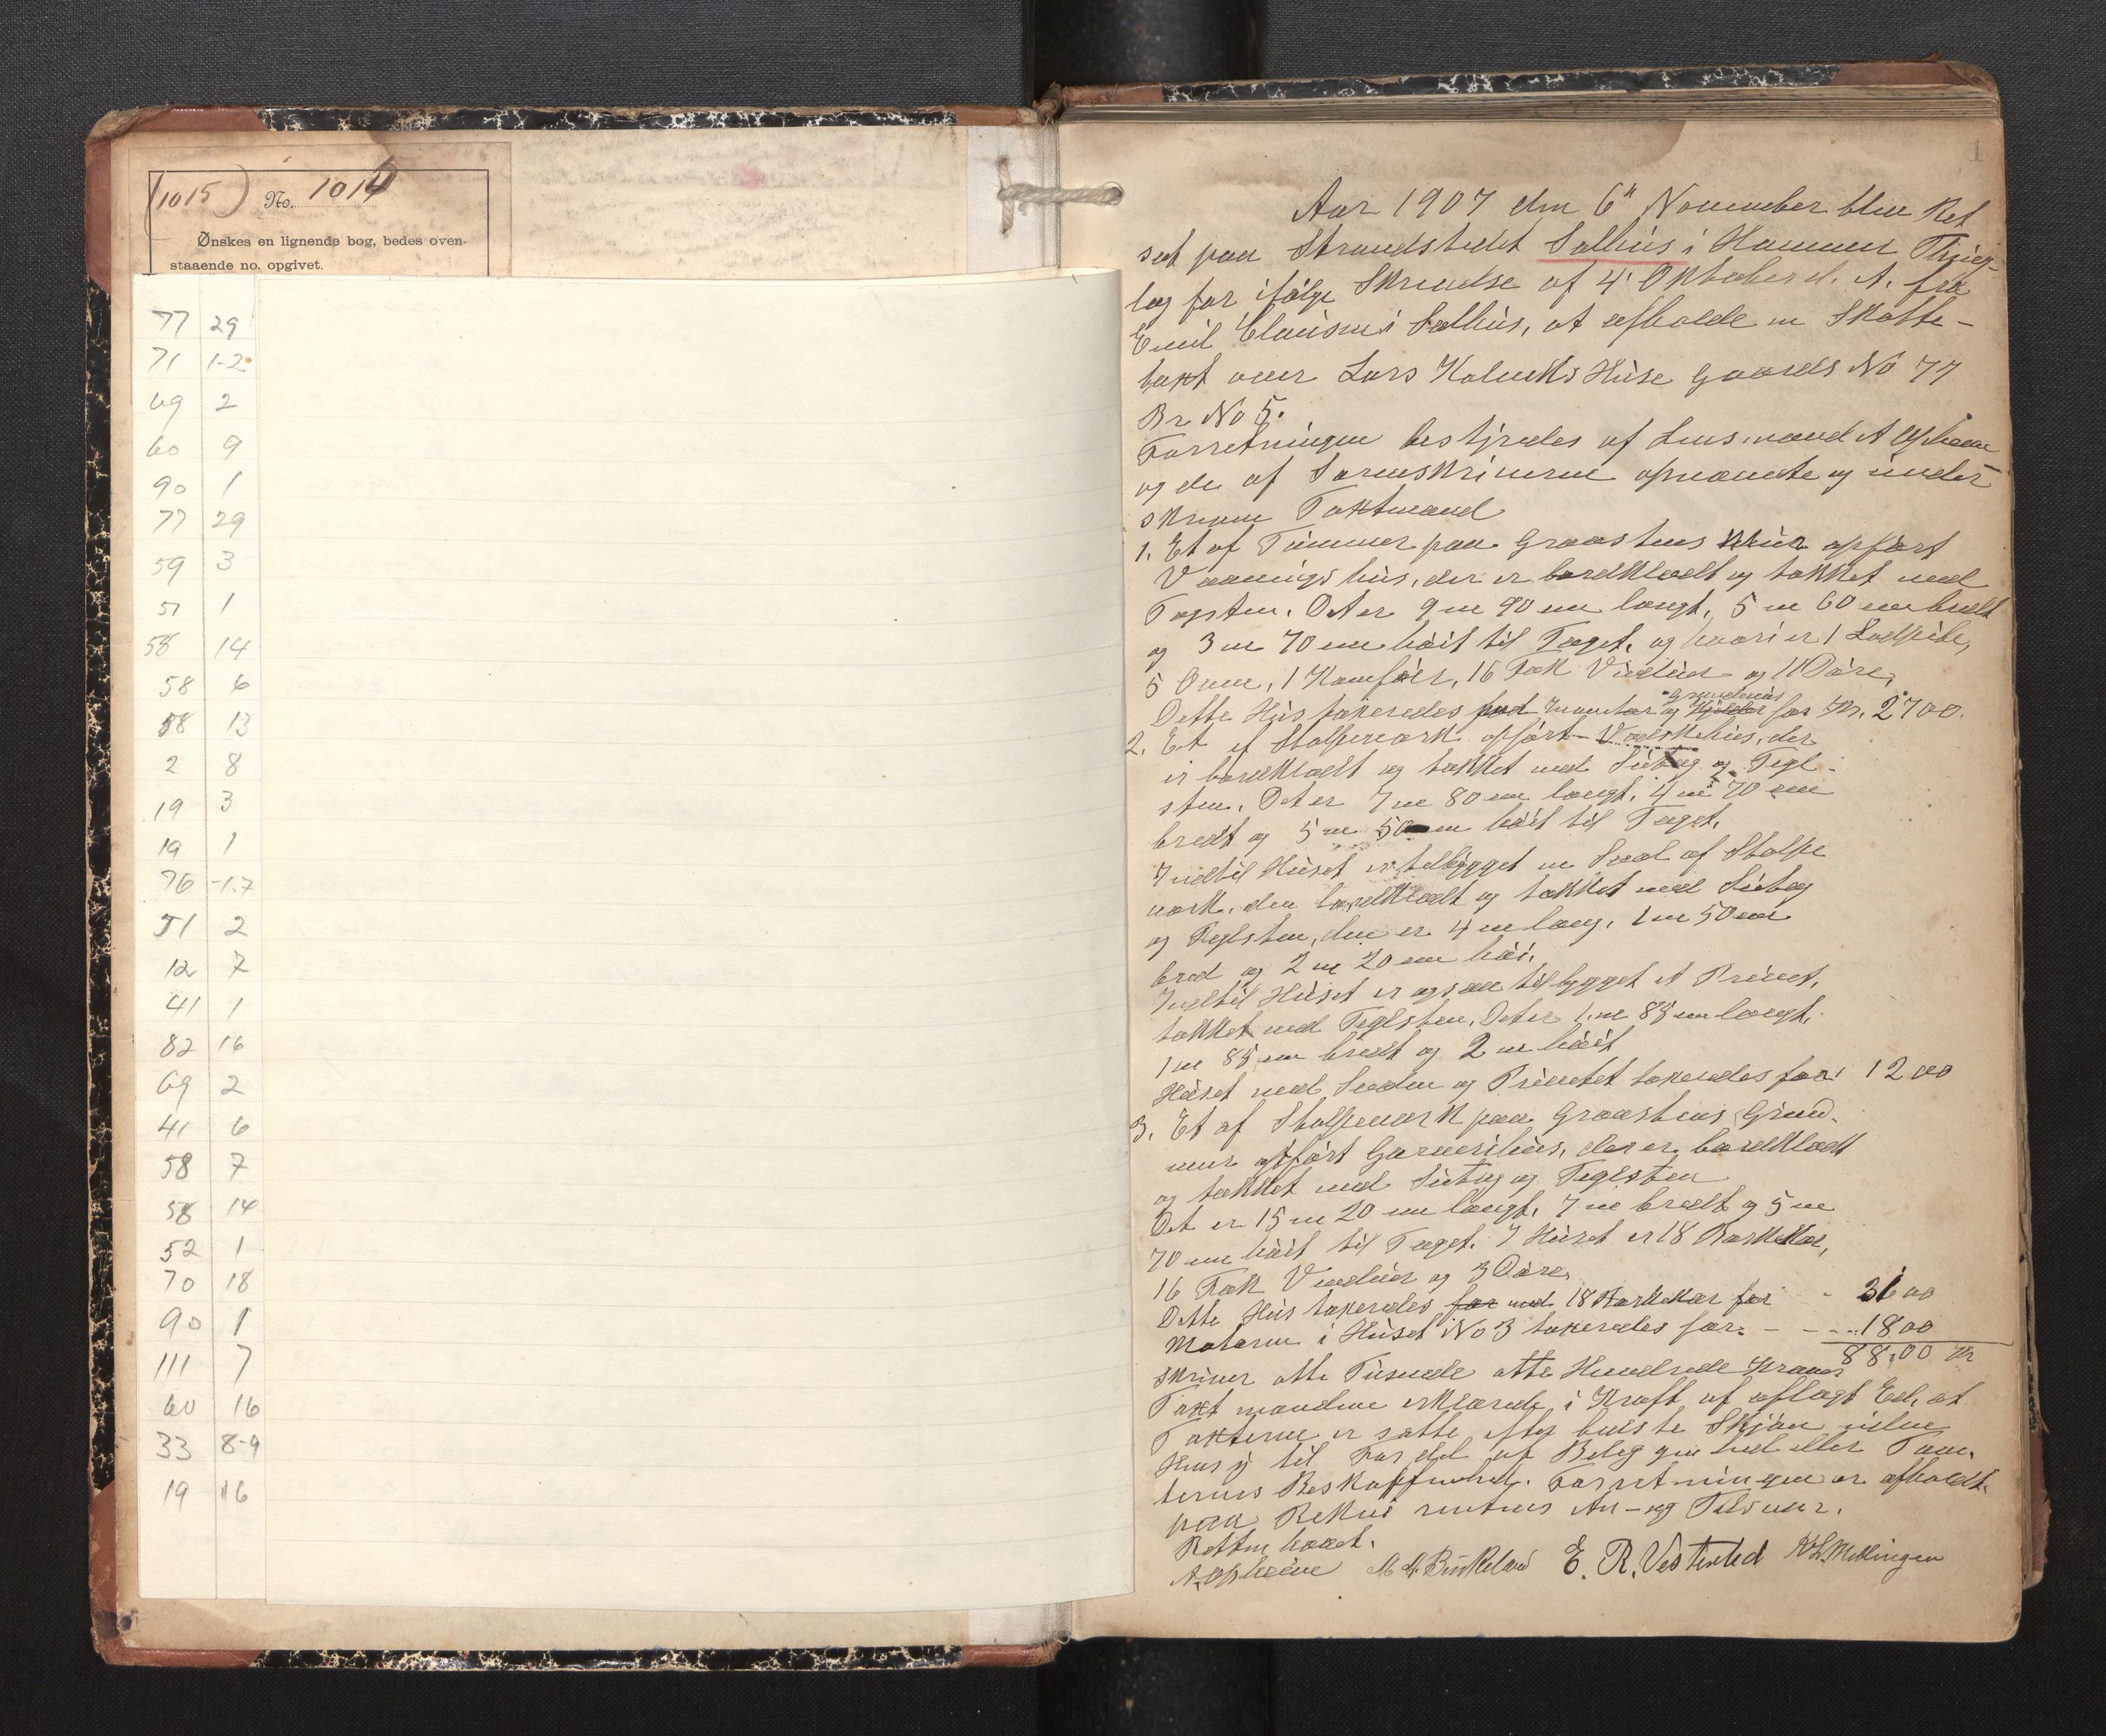 (1015) No. 1014
Ønskes en lignende bog, bedes oven-
staaende no. opgivet.
77 29
71 1-2
69 2
60 9
90 1
77 29
59 3
51 1
58 14
58 6
58 13
2 8
19 3
19 1
76 -1.7
51 2
12 7
41 1
82 16
69 2
41 6
58 7
58 14
52 1
70 18
90 1
111 7
60 16
33 8-9
19 16
1
Aar 1907 den 6" November blev Ret
sat paa Strandstedet Salhus i Hammer Thing-
lag for ifølge Skrivelse af 4' Oktober d. A. fra
Emil Clausen i Salhus, at afholde en Skatte-
taxt over Lars Kalviks Huse Gaards No 77
Br No 5.
Forretningen bestyredes af Lensmand A
og de af Sorenskriveren opnævnte og under-
skrevne Taxtmænd
1. Et af Tømmer paa Graastens Mur opført
Vaaningshus, der er bordklædt og tækket med
Tagsten. Det er 9 m 90 cm langt, 5 m 60 cm bredt
og 3 m 70 cm høit til Taget, og hvori er 1 Ludpibe,
5 Ovne, 1 Komfur, 16 Fak Vinduer og 11 Døre,
Dette Hus taxeredes med Inventar og Grundmur for Kr. 2700.
2. Et af Stolpeværk opført Vadskehus, der
er bordklædt og tækket med Sutag og Tegl-
sten. Det er 7 m 80 cm langt, 4 m 70 cm
bredt og 5 m 50 cm høit til Taget.
Indtil Huset er tilbygget en Sval af Stolpe
værk, den bordklædt og tækket med Sutag
og Teglsten, den er 4 m lang, 1 m 50 cm
bred og 2 m 20 cm høi.
Indtil Huset er ogsaa tilbygget et Privet,
tækket med Teglsten. Det er 1 m 85 cm langt,
1 m 85 cm bredt og 2 m høit
Huset med Svalen og Privetet taxeredes for 1200
3. Et af Stolpeværk paa Graastens Grund-
mur opført Garverihus, der er bordklædt
og tækket med Sutag og Teglsten
Det er 15 m 20 cm langt, 7 m bredt og 5 m
70 cm høit til Taget. I Huset er 18 Barkekar,
16 Fak Vinduer og 3 Døre.
Dette Hus taxeredes for med 18 Barkekar for - 3100
Motoren i Huset No 3 taxeredes for - - - 1800
8800 Kr
skriver otte Tusinde otte Hundrede Kroner
Taxtmændene erklærede i Kraft af aflagt Ed, at
Taxterne er satte efter bedste Skjøn uden
Hensyn til Fordel af Beliggenhed eller Tom-
ternes Beskaffenhed. Forretningen er afholdt
paa Rekvirentens An- og Tilsvar.
Retten hævet.
M A Birkeland E. R. Vestrheid Mellingen